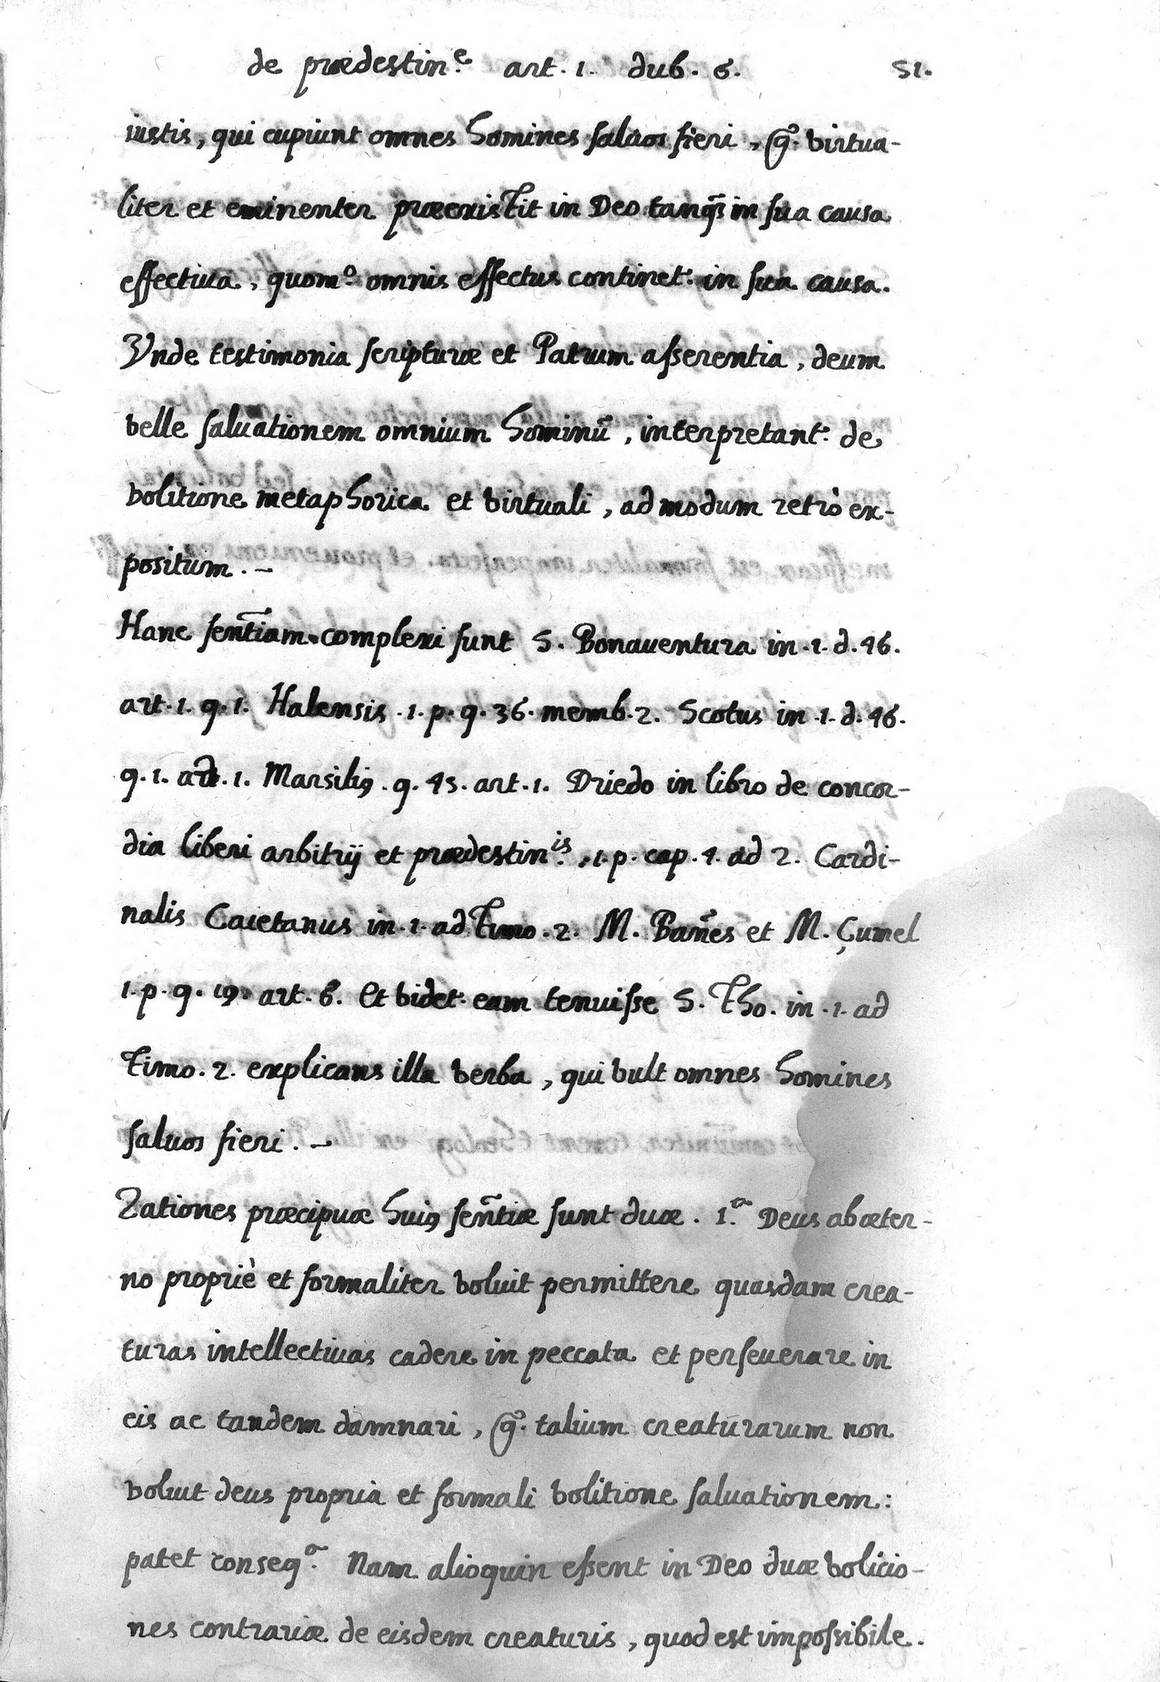 de prædestin.e art. 1. dub. 6. 51.
iustis, qui cupiunt omnes homines saluos fieri, g.̃ virtua-
liter et eminenter præexistit in Deo tanq̃ in sua causa
effectiua, quom.o omnis effectus continet.r in sua causa.
Vnde testimonia scripturæ et Patrum asserentia, deum
velle saluationem omnium hominũ, interpretant.r de
volitione metaphorica et virtuali, ad modum retrò ex-
positum. –
Hanc sent̃iam complexi sunt S. Bonauentura in .1. d. 46.
art. 1. q. 1. Halensis .1. p. q. 36. memb. 2. Scotus in .1. d. 46.
q. 1. art. 1. Marsiliꝯ. q. 45. art. 1. Driedo in libro de concor-
dia liberi arbitrij et prædestin.is, 1. p. cap. 4. ad 2. Cardi-
nalis Caietanus in .1. ad Timo. 2. M. Bañes et M. Çumel
1. p. q. 19. art. 6. Et videt.r eam tenuisse S. Tho. in .1. ad
Timo. 2. explicans illa verba, qui vult omnes homines
saluos fieri. –
Rationes præcipuæ huiꝯ señtiæ sunt duæ. 1.a Deus abæter-
no propriè et formaliter voluit permittere quasdam crea-
turas intellectiuas cadere in peccata et perseuerare in
eis ac tandem damnari, g.̃ talium creaturarum non
voluit deus propria et formali volitione saluationem:
patet conseq.a Nam alioquin essent in Deo duæ volicio-
nes contrariæ de eisdem creaturis, quod est impossibile.